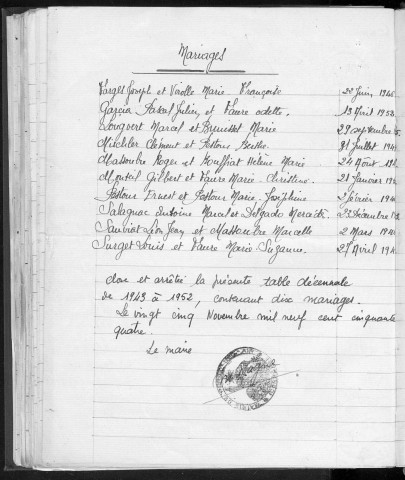 Mariages
Fargès Joseph et Virolle Marie Françoise 22 Juin 194
Garcia Pascal Julien et Faure Odette. 13 Avril 1952
Longvert Marcel et Brunissot Marie 29 septembre
Mischler Clément et Pestour Berthe. 31 Juillet 194
Massoubre Roger et Gouffiat Hélène Marie 24 Août 19
Monteil Gilbert et Faure Marie Christine. 21 Janvier 19
Pestour Ernest et Pestour Marie Joséphine 2 février 194
Salagnac Antoine Marcel et Delgado Mercédès 23 Décembre
Sauviat Léon Jean et Massoubre Marcelle 2 Mars 194
Surget Louis et Faure Marie Suzanne. 27 Avril 194
clos et arrêtée la présente table décennale
de 1943 à 1952, contenant dix mariages.
Le vingt cinq Novembre mil neuf cent cinquante
quatre.
Le maire